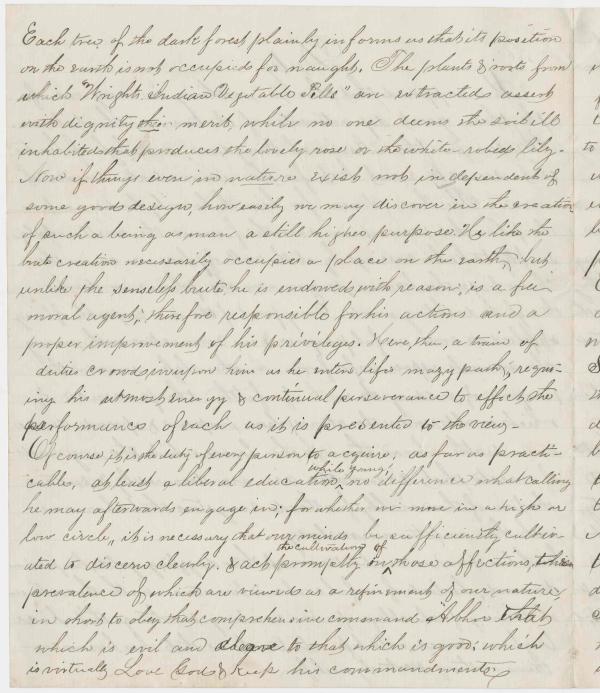 Each tree of the dark forest plainly informs us that its position
on the earth is not occupied for naught. The plants & roots from
which "Wright's Indian Vegetable Pills" are extracted assert
with dignity their merit, while no one deems the soil ill
inhabited that produces the lovely rose or the white-robed lily.
Now if things even in nature exist not independent of
some good design, how easily we may discover in the creation
of such a being as man a still higher purpose. He like the
brute creation necessarily occupies a place on the earth, but
unlike the senseless brute he is endowed with reason, is a free
moral agent, therefore responsible for his actions and a
proper improvement of his privileges. Here, then, a train of
duties crowds in upon him as he enters life's mazy path, requir-
ing his utmost energy & continual perseverance to effect the
performance of each as it is presented to the view-
Of course it is the duty of every person to acquire, as far as practi-
cable, at least a liberal education, while young, no difference what calling
he may afterwards engage in; for whether we move in a high or
low circle, it is necessary that our minds be sufficiently cultiv-
ated to discern clearly, & act promptly in the cultivation of those affections, the
prevalence of which are viewed as a refinement of our nature,
in short to obey that comprehensive command Abhor that
which is evil and cleave to that which is good; which
is virtually Love God & Keep his commandments.